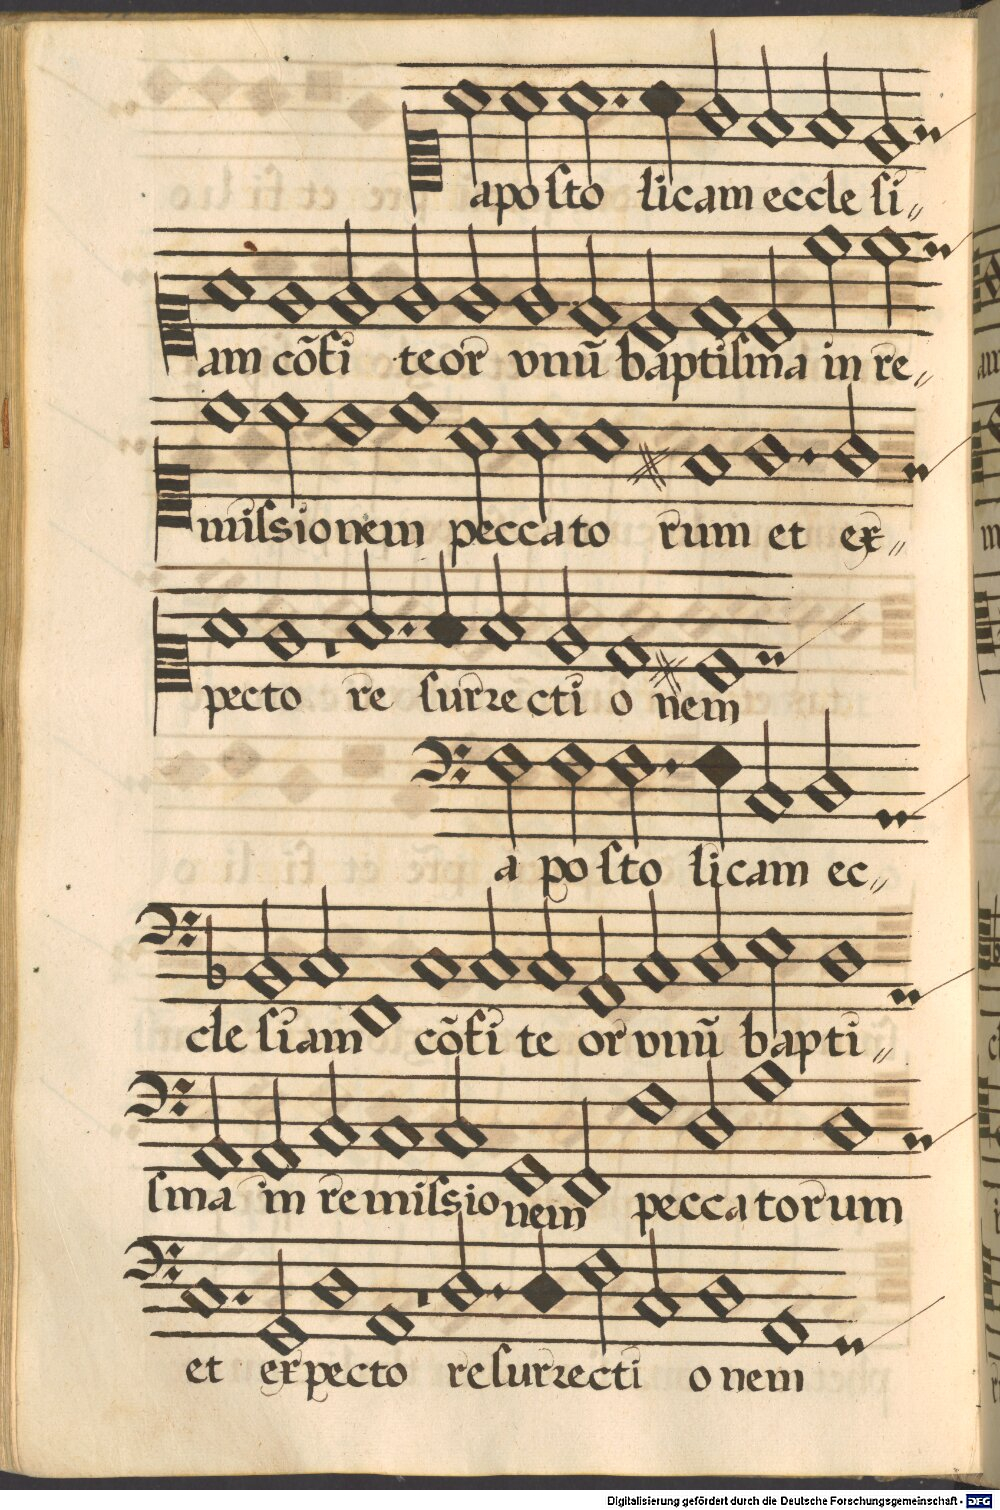 aposto licam eccle si„
am cõfi teor vnũ baptisma in re„
missionem peccato rum et ex„
pecto re surrecti o nem
a posto licam ec„
cle siam cõfi te or vnũ bapti„
sma in remissio nem peccatorum
et expecto resurrecti onem
Digitalisierung gefördert durch die Deutsche Forschungsgemeinschaft - DFG